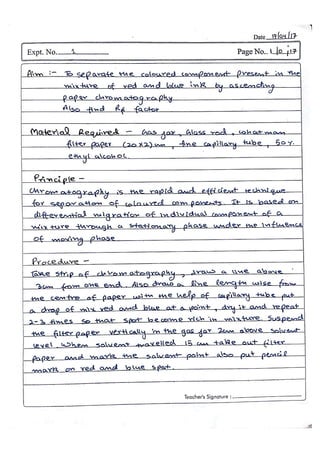 Date 17/04/17
Expt. No. 1 Page No. 1
Aim :- To separate the coloured component present in the
mixture of red and blue ink by ascending
paper chromatography
Also find Rf factor
Material Required - Gas jar, Glass rod, whatman
filter paper (20x2)cm, fine capillary tube, 50%
ethyl alcohol.
Principle -
Chromatography is the rapid and efficient technique
for separation of coloured components. It is based on
differential migration of individual component of a
mixture through a stationary phase under the influence
of moving phase
Procedure -
Take strip of chromatography, draw a line above
3cm from one end. Also draw a line length wise from
the centre of paper with the help of capillary tube put
a drop of mix red and blue at a point, dry it and repeat
2-3 times so that spot become rich in mixture. Suspend
the filter paper vertically in the gas jar 2cm above solvent
level. When solvent travelled 15 cm take out filter
paper and mark the solvent point also put pencil
mark on red and blue spot.
Teacher's Signature :